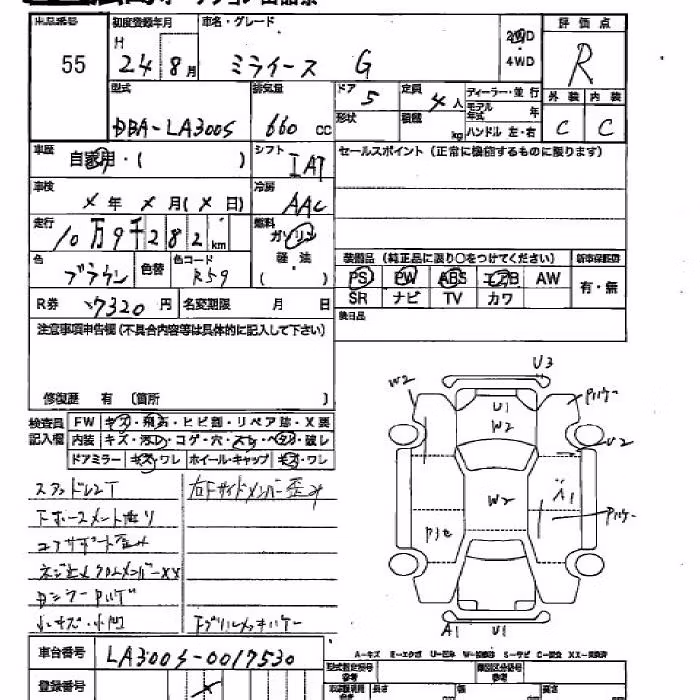 出品番号 初度登録年月 車名・グレード 評価点
55 H 24 8月 ミライース G 2WD R
4WD
型式 排気量 ドア 5 定員 4人 ディーラー・並行 外装 内装
DBA-LA300S 660 CC 形状 積載 kg モデル年式 年 C C
ハンドル 左・右
車歴 自家用・( ) シフト IAT セールスポイント (正常に機能するものに限ります)
車検 X年 X月(X日) 冷房 AAC
走行 10万9千282km 燃料 ガソリン
軽油
( )
色 ブラウン 色替 色コード R59 装備品 (純正品に限り○をつけてください) 新車保証書
PS PW ABS エアB AW 有・無
R券 7320円 名変期限 月 日 SR ナビ TV カワ
注意事項申告欄 (不具合内容等は具体的に記入して下さい) 装備品
修復歴 有 (箇所 )
検査員 FW キズ・飛石・ヒビ割・リペア跡・X要
記入欄 内装 キズ・汚レ・コゲ・穴・スレ・ベタ・破レ
ドアミラー キズ・ワレ ホイール・キャップ キズ・ワレ
右Fサイドメンバー歪み
コアサポート歪み
ネジ止メクロスメンバーXX
小キズ・小凹
W2 U3 Pハゲー
U1
W2 U2
W2 A1
Pハゲー
A1 U1
車台番号 LA300S-0017530
A-キズ E-エクボ U-凹み W-波あり S-サビ C-腐食 XX-交換済
登録番号 型式指定番号 類別区分番号
参考 参考
長さ 幅 高さ
cm cm cm